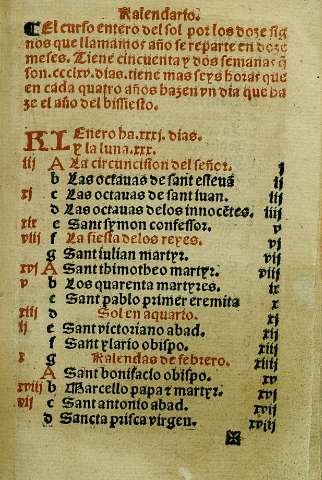 Kalendario.
El curso entero del sol por los doze sig
nos que llamamos año se reparte en doze
meses. Tiene cincuenta y dos semanas q̃
son.ccclxv.dias.tiene mas seys horas que
en cada quatro años hazen vn dia que ha
ze el año del bissiesto.
KL Enero ha.xxxj.dias.
y la luna.xxx.
iij A La circuncision del señor. j
b Las octauas de sant esteuã ij
xj c Las octauas de sant iuan. iij
d Las octauas delos innocẽtes. iiij
xix e Sant symon confessor. v
viij f La fiesta delos reyes. vj
g Sant iulian martyr. vij
xvj A Sant thimotheo martyr. viij
v b Los quarenta martyres. ix
c Sant pablo primer eremita x
xiij d Sol en aquario. xj
ij e Sant victoriano abad. xij
f Sant ylario obispo. xiij
x g Kalendas de febrero. xiiij
A Sant bonifacio obispo. xv
xviij b Marcello papa τ martyr. xvj
vij c Sant antonio abad. xvij
d Sancta prisca virgen. xviij